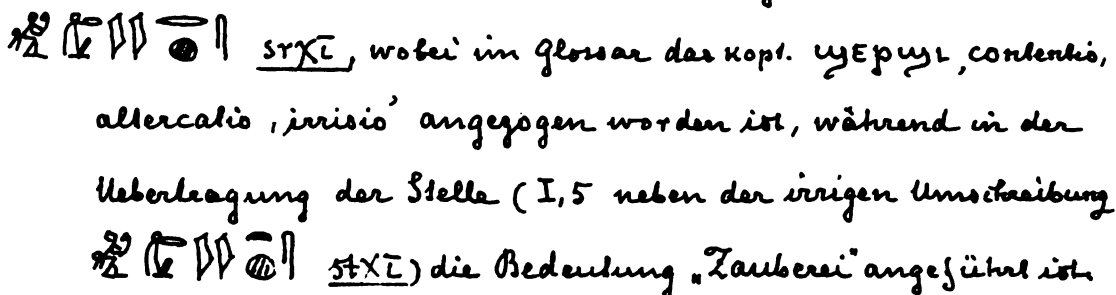 srχī, wobei im Glossar das kopt. ϣⲉⲣϣⲓ, contentio,
altercatio, irrisio' angezogen worden ist, während in der
Uebertragung der Stelle (I,5 neben der irrigen Umschreibung
stχī) die Bedeutung „Zauberei" angeführt ist.